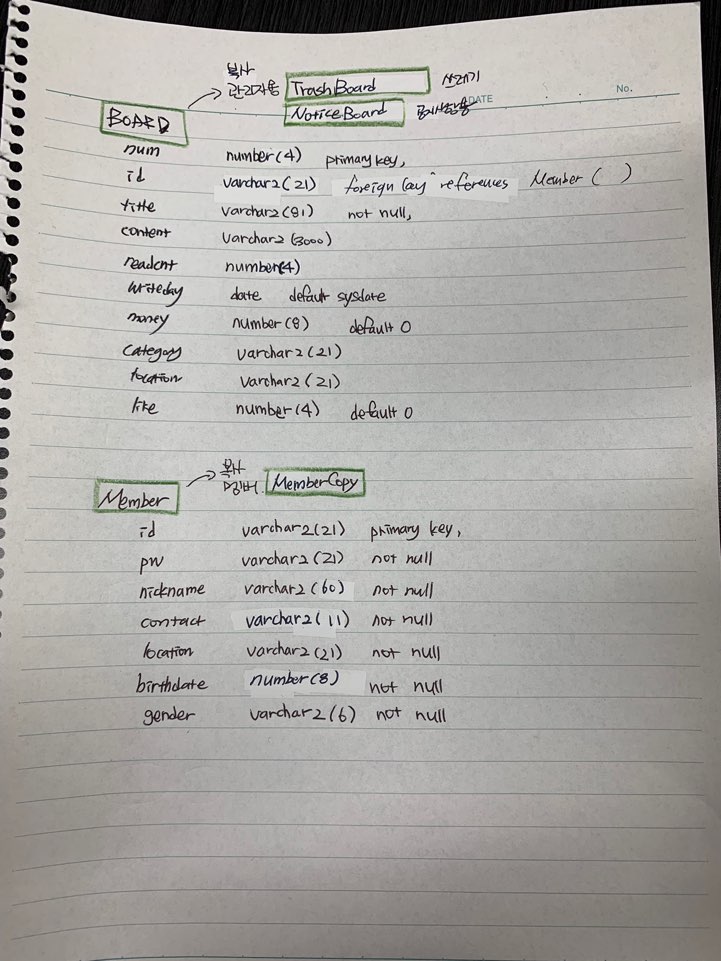 복사
관리자용 TrashBoard 쓰레기
NoticeBoard 공지사항용
DATE No.
BOARD
num number(4) primary key,
id varchar2(21) foreign key references Member ( )
title varchar2(81) not null,
content varchar2(3000)
readcnt number(4)
writeday date default sysdate
money number(8) default 0
category varchar2(21)
location varchar2(21)
like number(4) default 0
복사
MemberCopy
Member
id varchar2(21) primary key,
pw varchar2(21) not null
nickname varchar2(60) not null
contact varchar2(11) not null
location varchar2(21) not null
birthdate number(8) not null
gender varchar2(6) not null